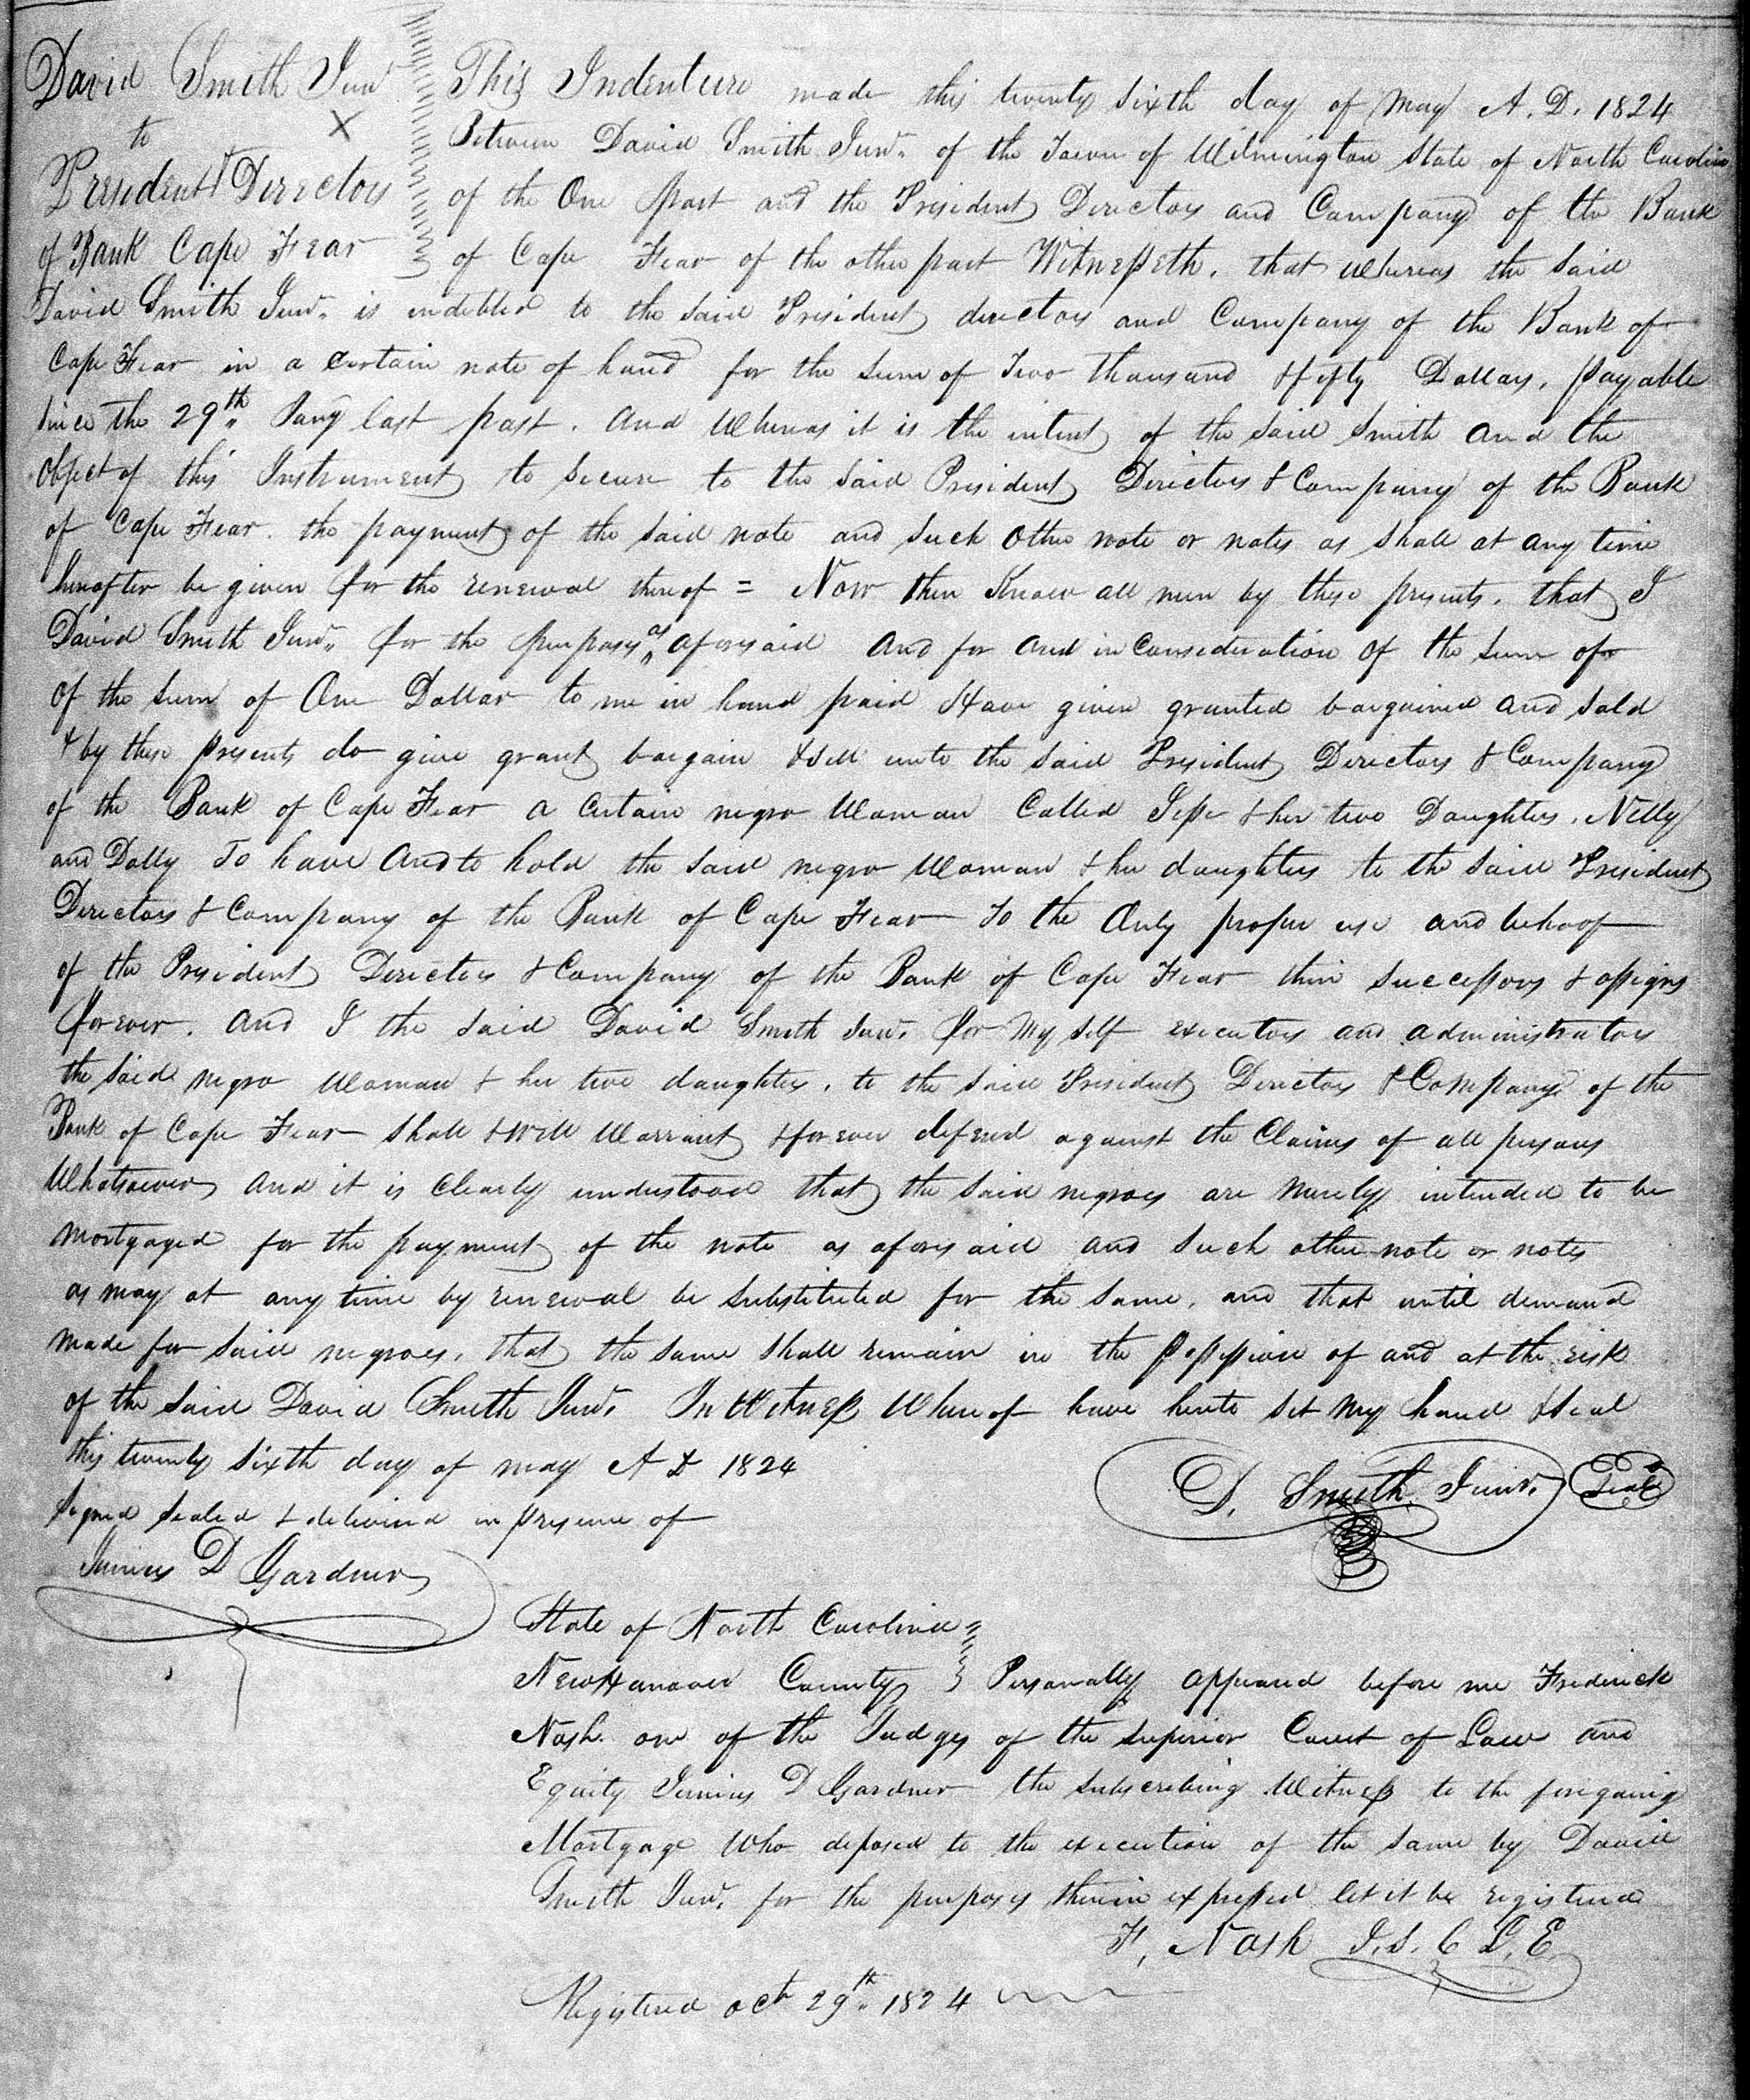 David Smith Junr
to X
President & Directors
of Bank Cape Fear
This Indenture made this twenty sixth day of May A. D. 1824
Between David Smith Junr. of the Town of Wilmington State of North Carolina
of the One part and the President Directors and Company of the Bank
of Cape Fear of the other part Witnesseth. that whereas the said
David Smith Junr. is indebted to the said President directors and Company of the Bank of
Cape Fear in a certain note of hand for the sum of Two thousand & fifty Dollars, payable
since the 29th. Jany last past. And Whereas it is the intent of the said Smith and the
Object of this Instrument to secure to the said President Directors & Company of the Bank
of Cape Fear. the payment of the said note and such other note or notes as shall at any time
hereafter be given for the renewal thereof = Now then Know all men by these presents. that I
David Smith Junr. for the purposes as aforesaid and for and in Consideration of the sum of
Of the sum of One Dollar to me in hand paid Have given granted bargained and sold
& by these presents do give grant bargain & sell unto the said President Directors & Company
of the Bank of Cape Fear a Certain negro Woman Called & her two Daughters. Nelly
and Dolly To have and to hold the said negro Woman & her daughters to the said President
Directors & Company of the Bank of Cape Fear To the Only proper use and behoof
of the President Directors & Company of the Bank of Cape Fear their Successors & assigns
forever. And I the said David Smith Junr. for My self executors and administrators
the said negro Woman & her two daughters. to the said President Directors & Company of the
Bank of Cape Fear shall & will Warrant & forever defend against the Claims of all persons
Whatsoever and it is Clearly understood that the said negroes are Merely intended to be
mortgaged for the payment of the note as aforesaid and such other note or notes
as may at any time by renewal be substituted for the same, and that until demand
made for said negroes, that the same shall remain in the possession of and at the risk
of the said David Smith Junr. In Witness Whereof have hereto set My hand & seal
this twenty sixth day of may A D 1824
D. Smith Junr. Seal
Signed sealed & delivered in presence of
Junius D Gardner
State of North Carolina
New Hanover County } Personally appeared before me Frederick
Nash. one of the Judges of the superior Court of Law and
Equity Junius D Gardner the subscribing Witness to the foregoing
Mortgage Who deposed to the execution of the same by David
Smith Junr. for the purposes therein expressed let it be registered
F. Nash J. S. C L. E.
Registered oct 29th. 1824